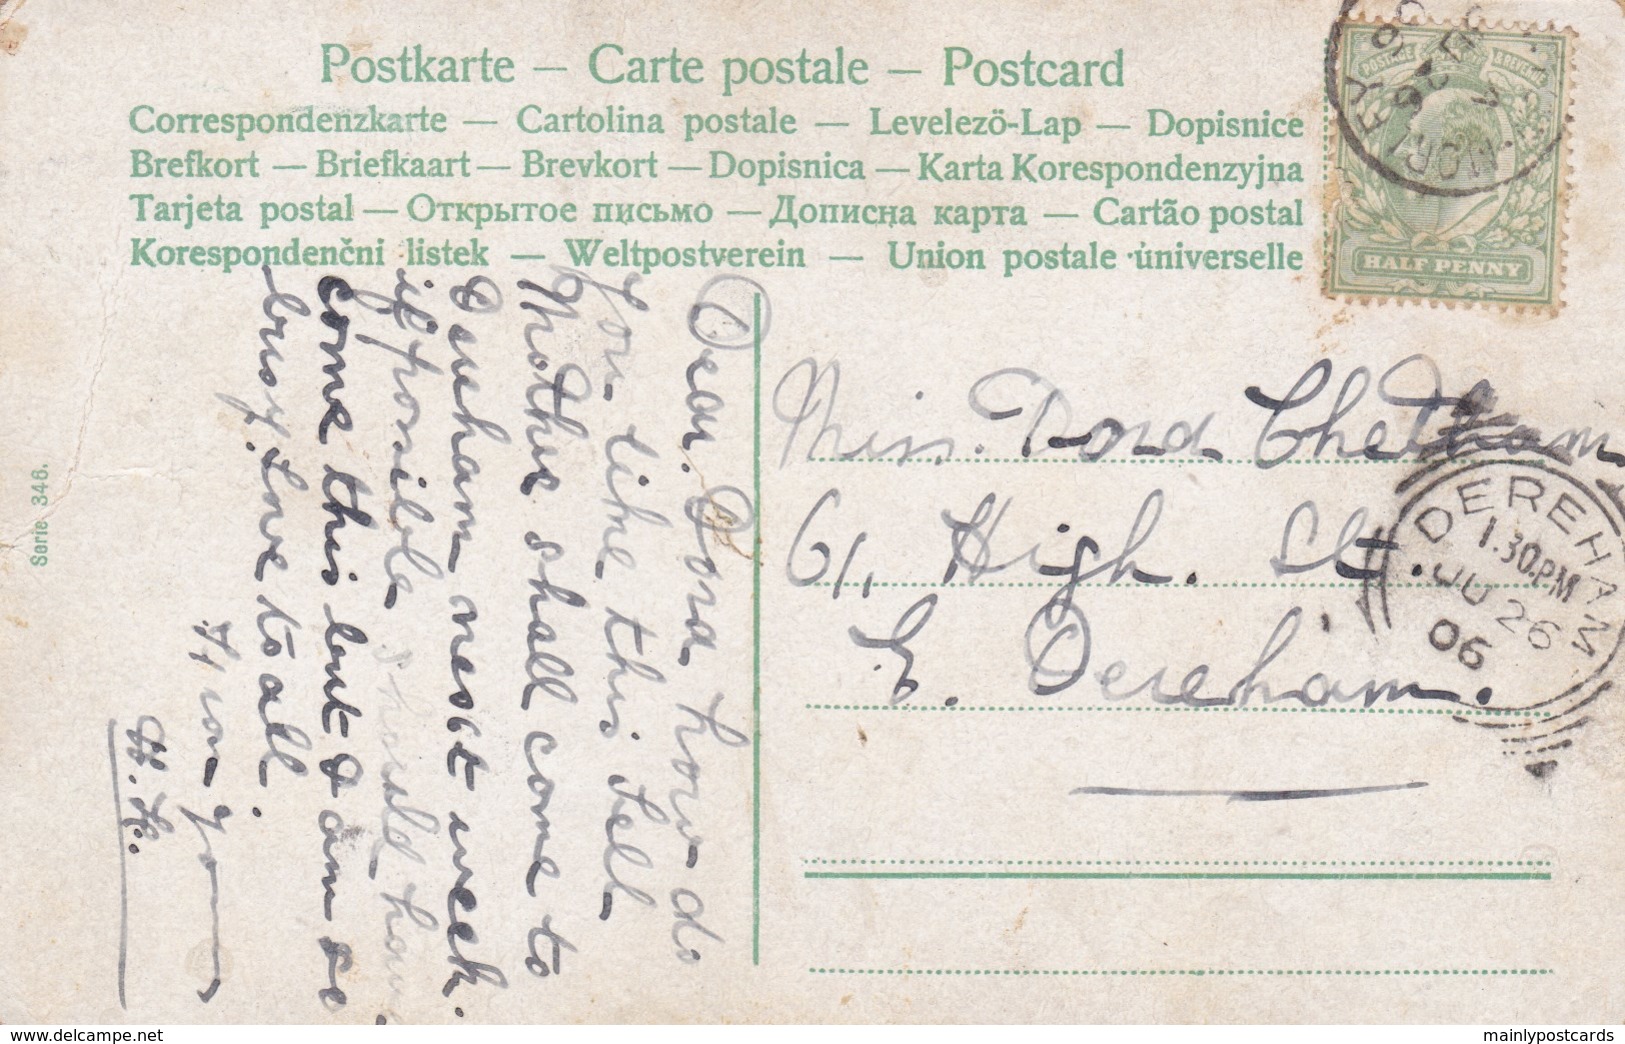 Postkarte — Carte postale — Postcard
Correspondenzkarte — Cartolina postale — Levelezö-Lap — Dopisnice
Brefkort — Briefkaart — Brevkort — Dopisnica — Karta Korespondenzyjna
Tarjeta postal — Открытое письмо — Дописна карта — Cartão postal
Korespondenčni listek — Weltpostverein — Union postale universelle
POSTAGE & REVENUE
HALF PENNY
Dear Dora how do
you like this tell
Mother shall come to
Dereham next week.
if possible should have
come this but I am so
busy. Love to all.
from
H.
Miss. Dora Chettham
61, High. St.
E. Dereham.
DEREHAM
1.30.PM
JU 26
06
Serie 346.
www.delcampe.net
mainlypostcards